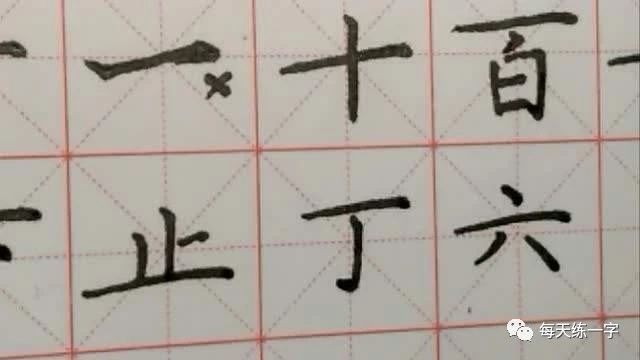 一 × 十 百
止 丁 六
每天练一字